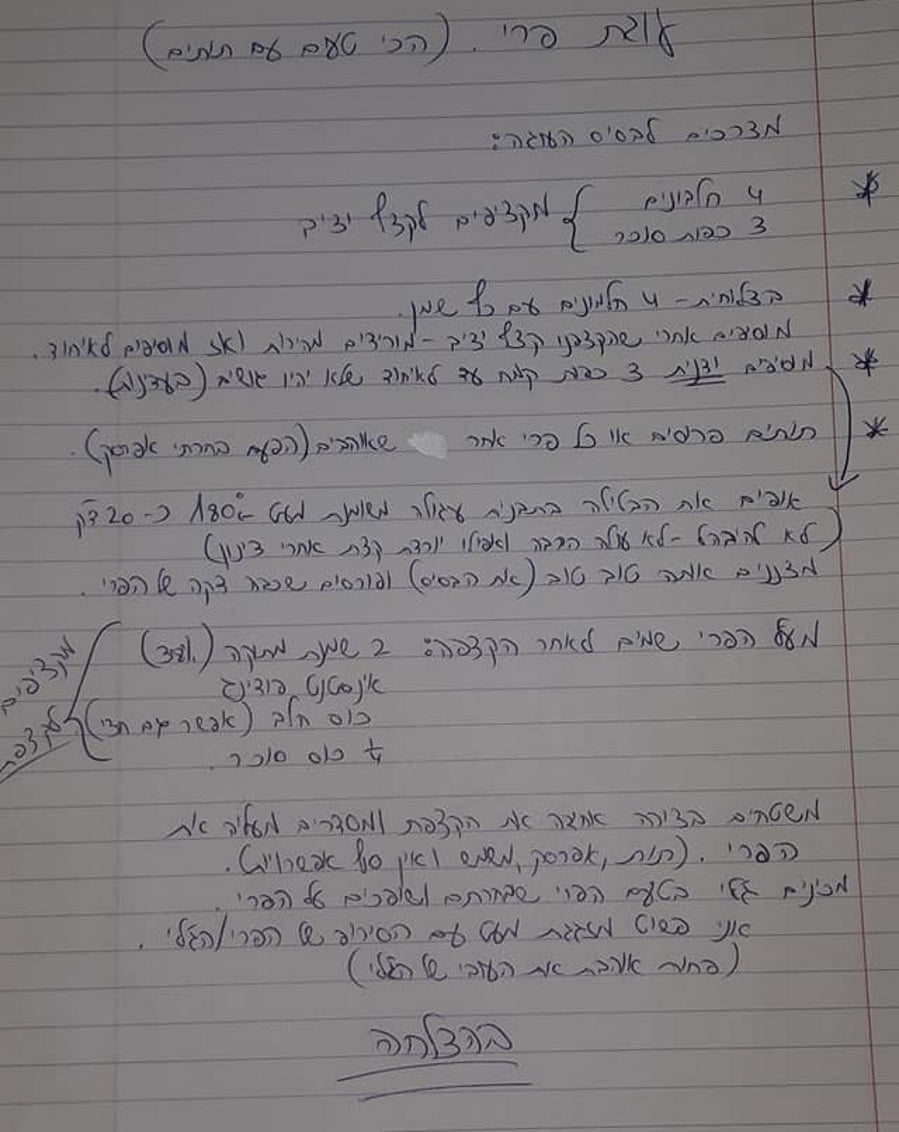 עוגת פרי. (הכי טעם עם תותים)
מצרכים לבסיס העוגה:
* 4 חלבונים } מקציפים לקצף יציב
3 כפות סוכר
* בצלוחית - 4 חלמונים עם כף שמן.
מוסיפים אחרי שהקצפנו קצף יציב - מורידים מהירות ואז מוסיפים לאיחוד.
* מוסיפים ידנית 3 כפות קמח עד לאיחוד שלא יהיו גושים (בעדינות).
* תותים פרוסים או כל פרי אחר שאוהבים (הפעם בחרתי אפרסק).
אופים את הבלילה בתבנית עגולה משומנת מעט 180° כ-20 דק
(לא להיבהל - לא עולה הרבה ואפילו יורדת קצת אחרי צינון)
מצננים אותה טוב טוב (את הבסיס) ופורסים שכבה דקה של הפרי.
מעל הפרי שמים לאחר הקצפה: 2 שמנת מתוקה
אינסטנט פודינג
כוס חלב (אפשר גם חצי)
¼ כוס סוכר.
מקציפים
לקצפת
משטחים בצורה אחידה את הקצפת ומסדרים מעליה את
הפרי. (תות, אפרסק, משמש ואין סוף אפשרויות).
מכינים ג'לי בטעם הפרי שבחרתם ושופכים על הפרי.
אני פשוט מזגגת מעט עם הסירופ של הפרי/הג'לי.
(פחות אוהבת את העובי של הג'לי)
בהצלחה